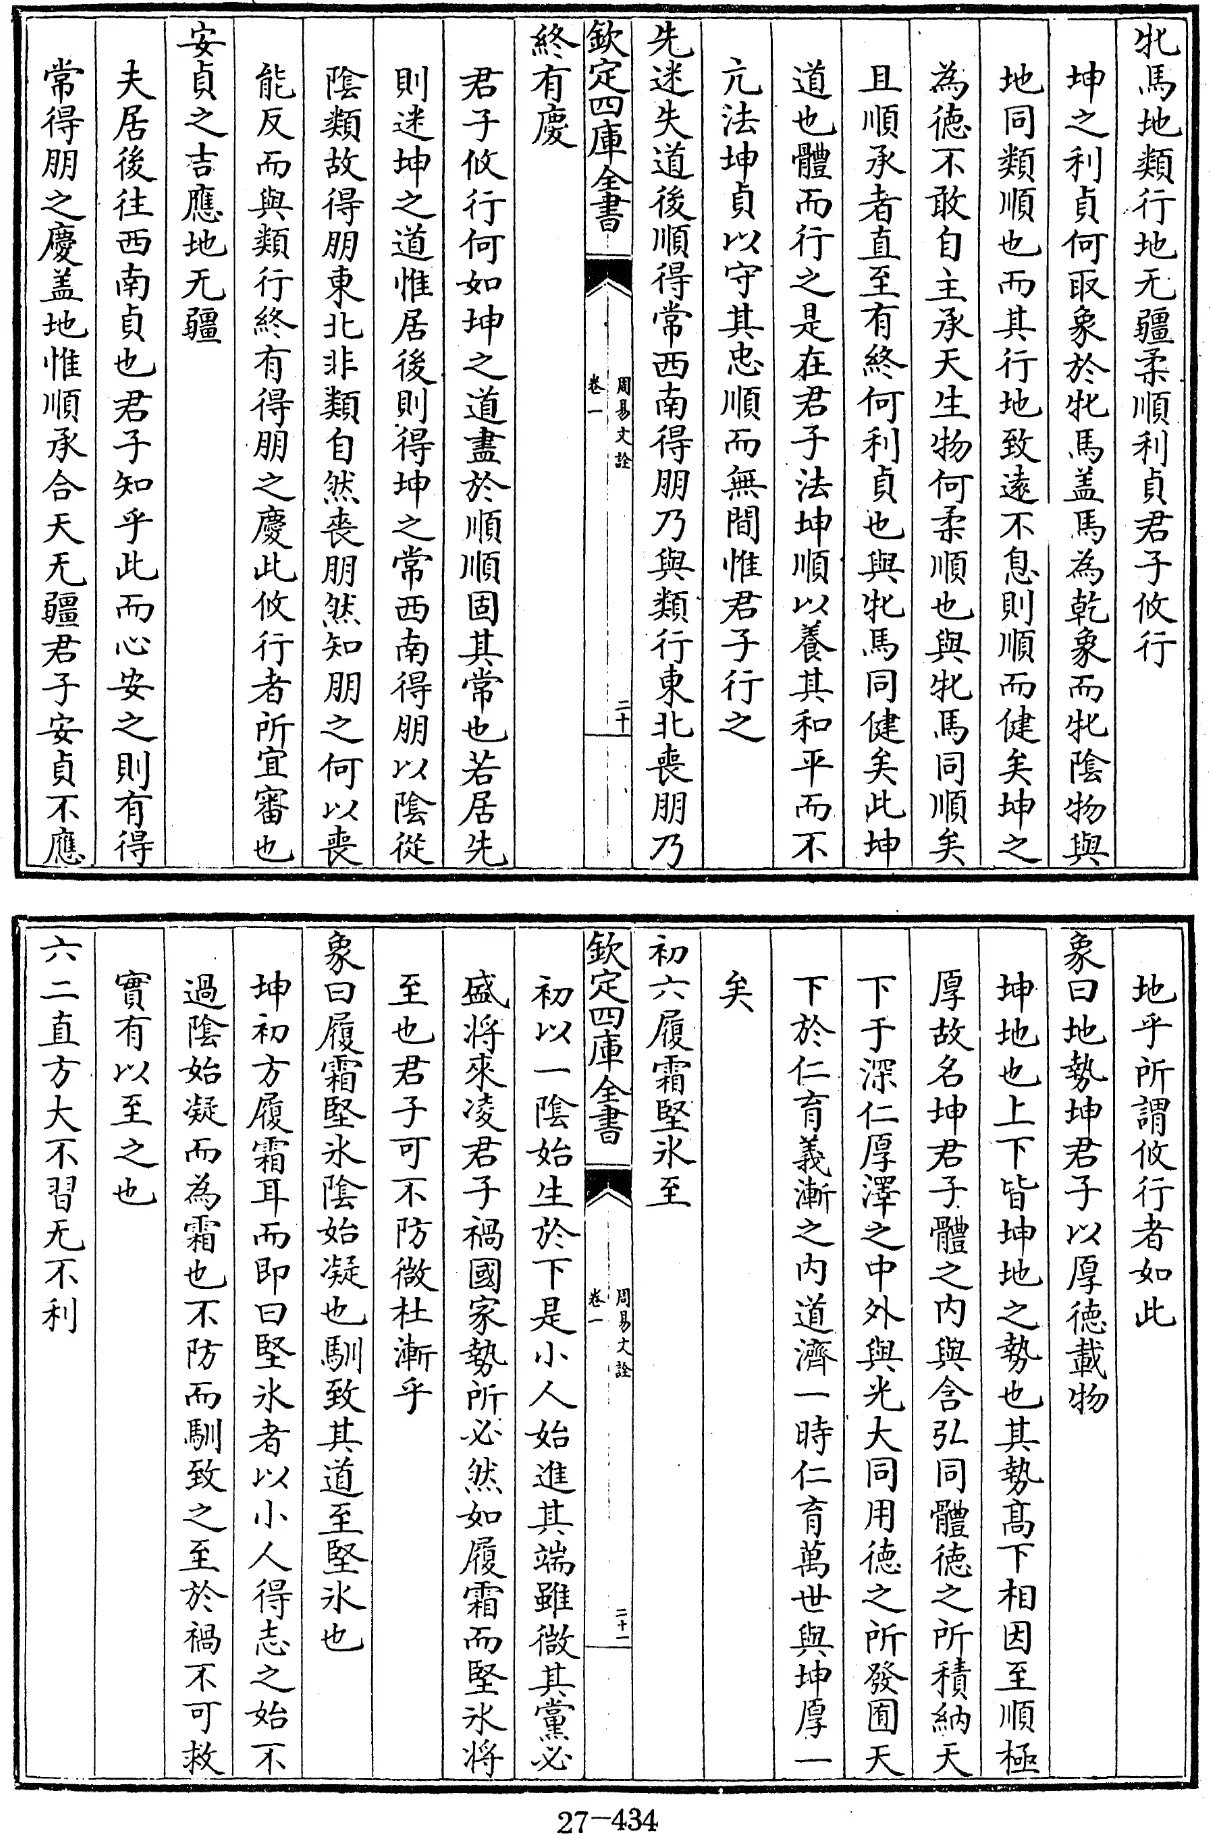 牝馬地類行地无疆柔順利貞君子攸行
坤之利貞何取象於牝馬盖馬為乾象而牝陰物與
地同類順也而其行地致遠不息則順而健矣坤之
為徳不敢自主承天生物何柔順也與牝馬同順矣
且順承者直至有終何利貞也與牝馬同健矣此坤
道也體而行之是在君子法坤順以養其和平而不
亢法坤貞以守其忠順而無間惟君子行之
先迷失道後順得常西南得朋乃與類行東北喪朋乃
欽定四庫全書
周易文詮
卷一
二十
終有慶
君子攸行何如坤之道盡於順順固其常也若居先
則迷坤之道惟居後則得坤之常西南得朋以陰從
陰類故得朋東北非類自然喪朋然知朋之何以喪
能反而與類行終有得朋之慶此攸行者所宜審也
安貞之吉應地无疆
夫居後往西南貞也君子知乎此而心安之則有得
常得朋之慶盖地惟順承合天无疆君子安貞不應
地乎所謂攸行者如此
象曰地勢坤君子以厚徳載物
坤地也上下皆坤地之勢也其勢髙下相因至順極
厚故名坤君子體之内與含弘同體徳之所積納天
下于深仁厚澤之中外與光大同用徳之所發囿天
下於仁育義漸之内道濟一時仁育萬世與坤厚一
矣
初六履霜堅氷至
欽定四庫全書
周易文詮
卷一
二十一
初以一陰始生於下是小人始進其端雖微其黨必
盛將來凌君子禍國家勢所必然如履霜而堅氷將
至也君子可不防微杜漸乎
象曰履霜堅氷陰始凝也馴致其道至堅氷也
坤初方履霜耳而即曰堅氷者以小人得志之始不
過陰始凝而為霜也不防而馴致之至於禍不可救
實有以至之也
六二直方大不習无不利
27-434